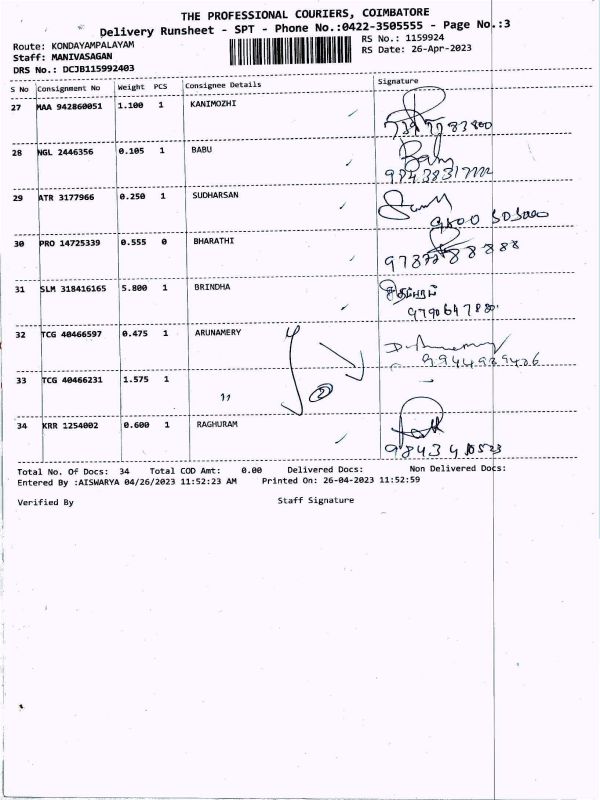 THE PROFESSIONAL COURIERS, COIMBATORE
Delivery Runsheet - SPT - Phone No.:0422-3505555 - Page No.:3
Route: KONDAYAMPALAYAM
RS No.: 1159924
Staff: MANIVASAGAN
RS Date: 26-Apr-2023
DRS No.: DCJB115992403
S No Consignment No Weight PCS Consignee Details Signature
27 MAA 942860051 1.100 1 KANIMOZHI
28 NGL 2446356 0.105 1 BABU
Babu
29 ATR 3177966 0.250 1 SUDHARSAN
9800 505000
30 PRO 14725339 0.555 0 BHARATHI
31 SLM 318416165 5.800 1 BRINDHA
32 TCG 40466597 0.475 1 ARUNAMERY
33 TCG 40466231 1.575 1 "
2
34 KRR 1254002 0.600 1 RAGHURAM
Total No. Of Docs: 34 Total COD Amt: 0.00 Delivered Docs: Non Delivered Docs:
Entered By :AISWARYA 04/26/2023 11:52:23 AM Printed On: 26-04-2023 11:52:59
Verified By Staff Signature